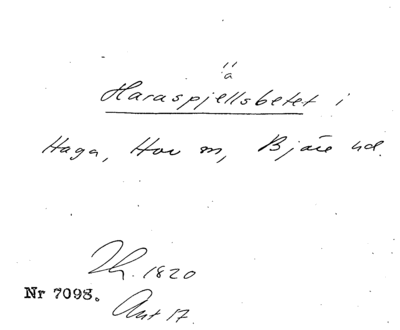 ä
Haraspjellsbetet i
Haga, Hov sn, Bjäre hd.
Th. 1820
Nr 7098.
Ant 17.